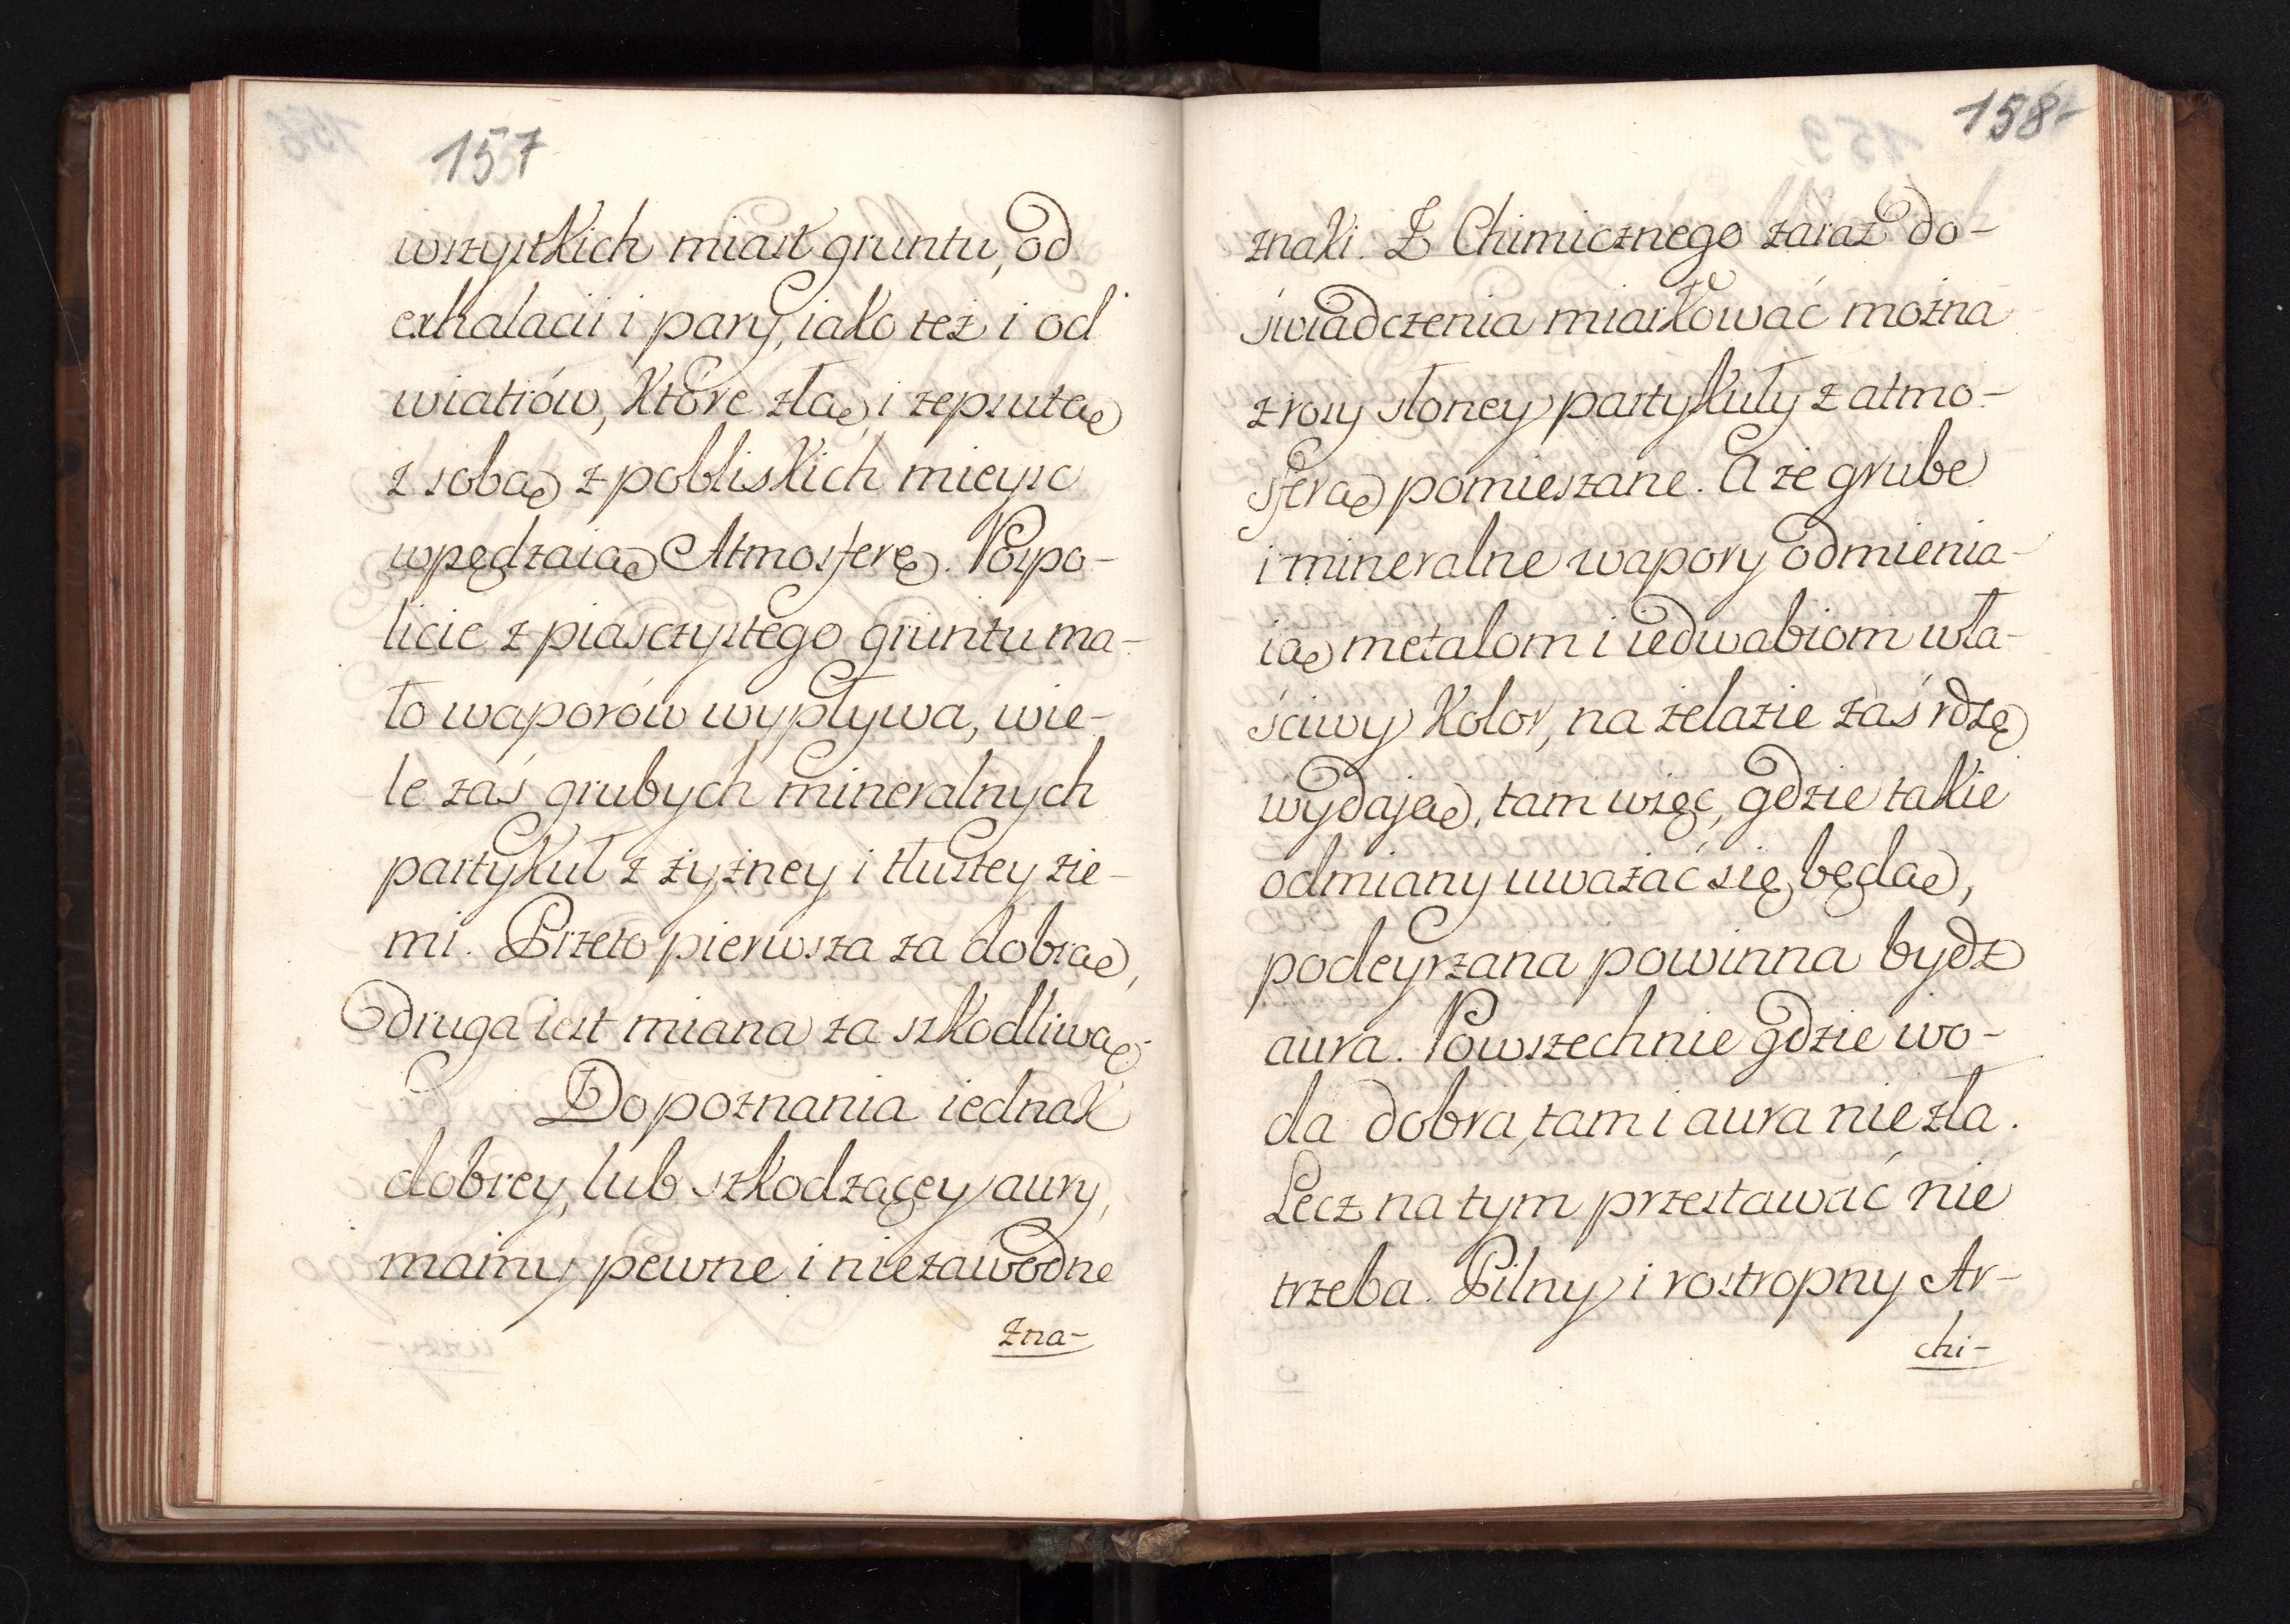 157
wszystkich miast gruntu, od
exhalacii i pary, iako też i od
wiatrów, które złą, i zepsutą
z sobą z pobliskich mieysc
wpędzaią Atmosferę. Pospo-
licie z piasczystego gruntu ma-
ło waporów wypływa, wie-
le zaś grubych mineralnych
partykuł z żyzney i tłustey zie-
mi. Przeto pierwsza za dobrą,
druga iest miana za szkodliwą.
Do poznania iednak
dobrey, lub szkodzącey aury,
mamy pewne i niezawodne
zna-
158
znaki. Z Chimicznego zaraz do-
świadczenia miarkować można
z rosy słoney partykuły z atmo-
sferą pomieszane. A że grube
i mineralne wapory odmienia-
ią metalom i iedwabiom wła-
ściwy kolor, na żelazie zaś rdzę
wydają, tam więc, gdzie takie
odmiany uważać się będą,
podeyrzana powinna bydz
aura. Powszechnie gdzie wo-
da dobra, tam i aura niezła.
Lecz na tym przestawać nie
trzeba. Pilny i rostropny Ar-
chi-